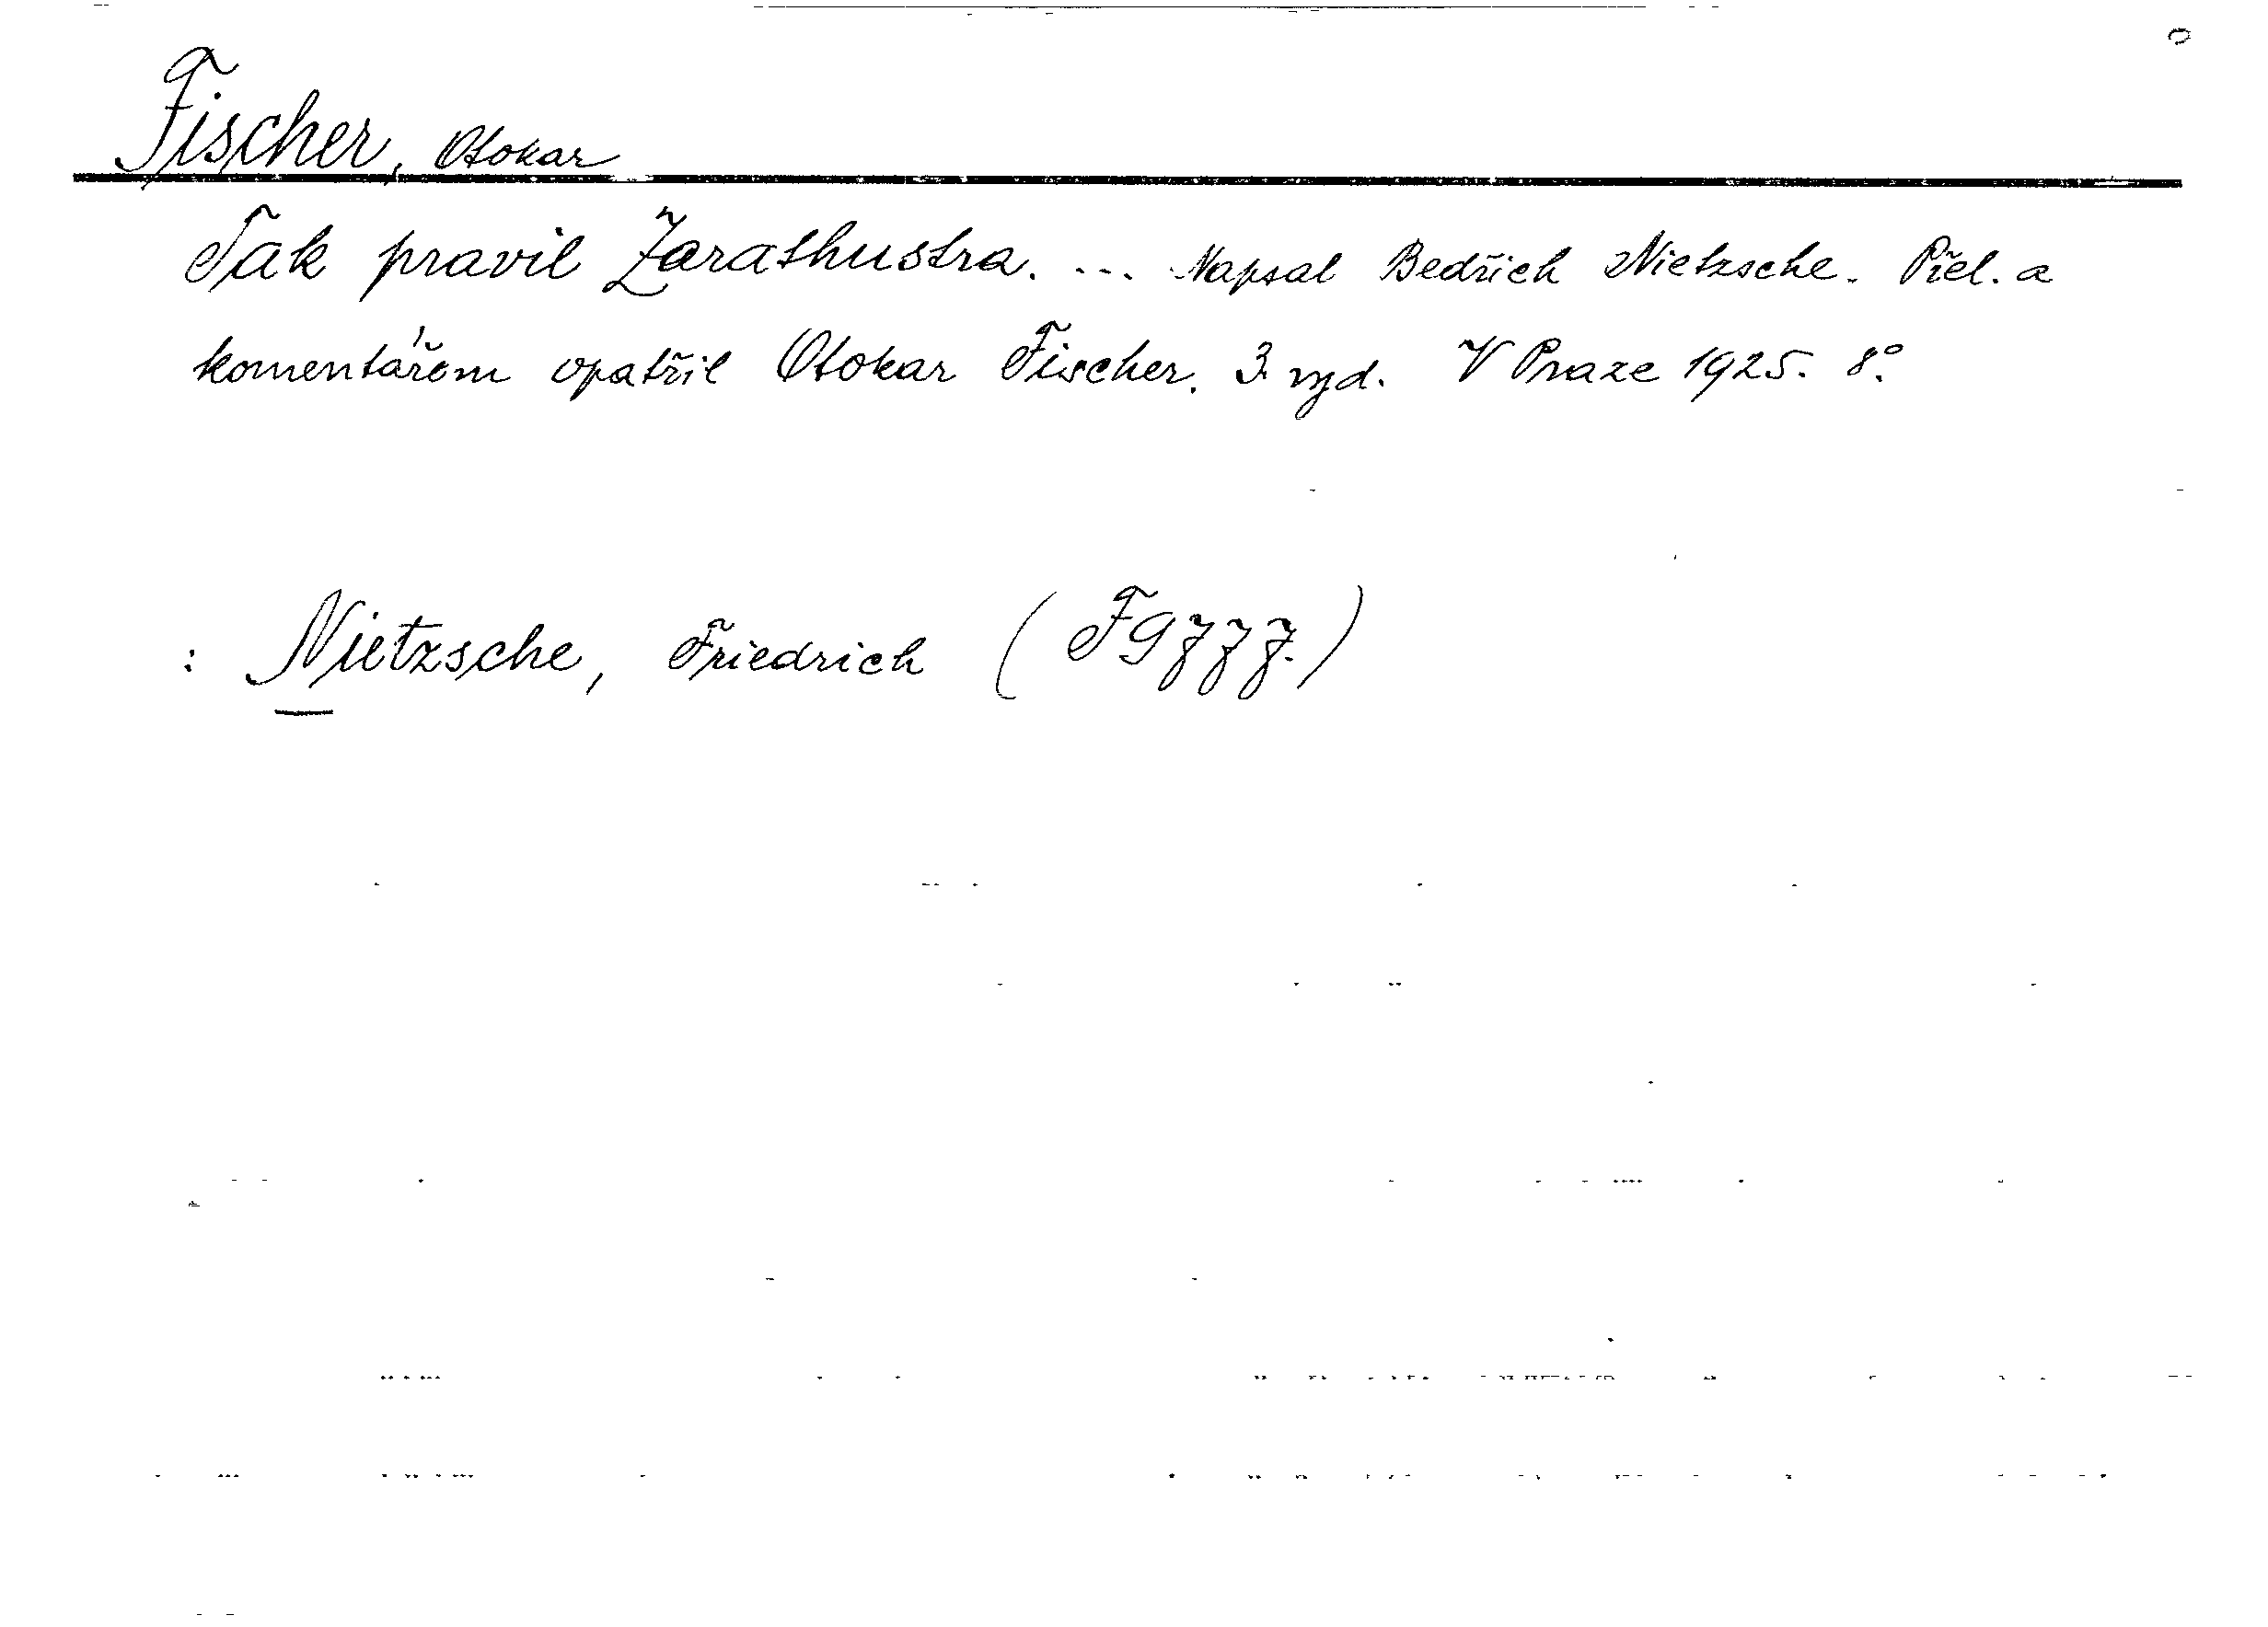 Fischer, Otokar
Tak pravil Zarathustra. ... Napsal Bedřich Nietzsche. Přel. a
komentářem opatřil Otokar Fischer. 3. vyd. V Praze 1925. 8°.
: Nietzsche, Friedrich (F9777.)